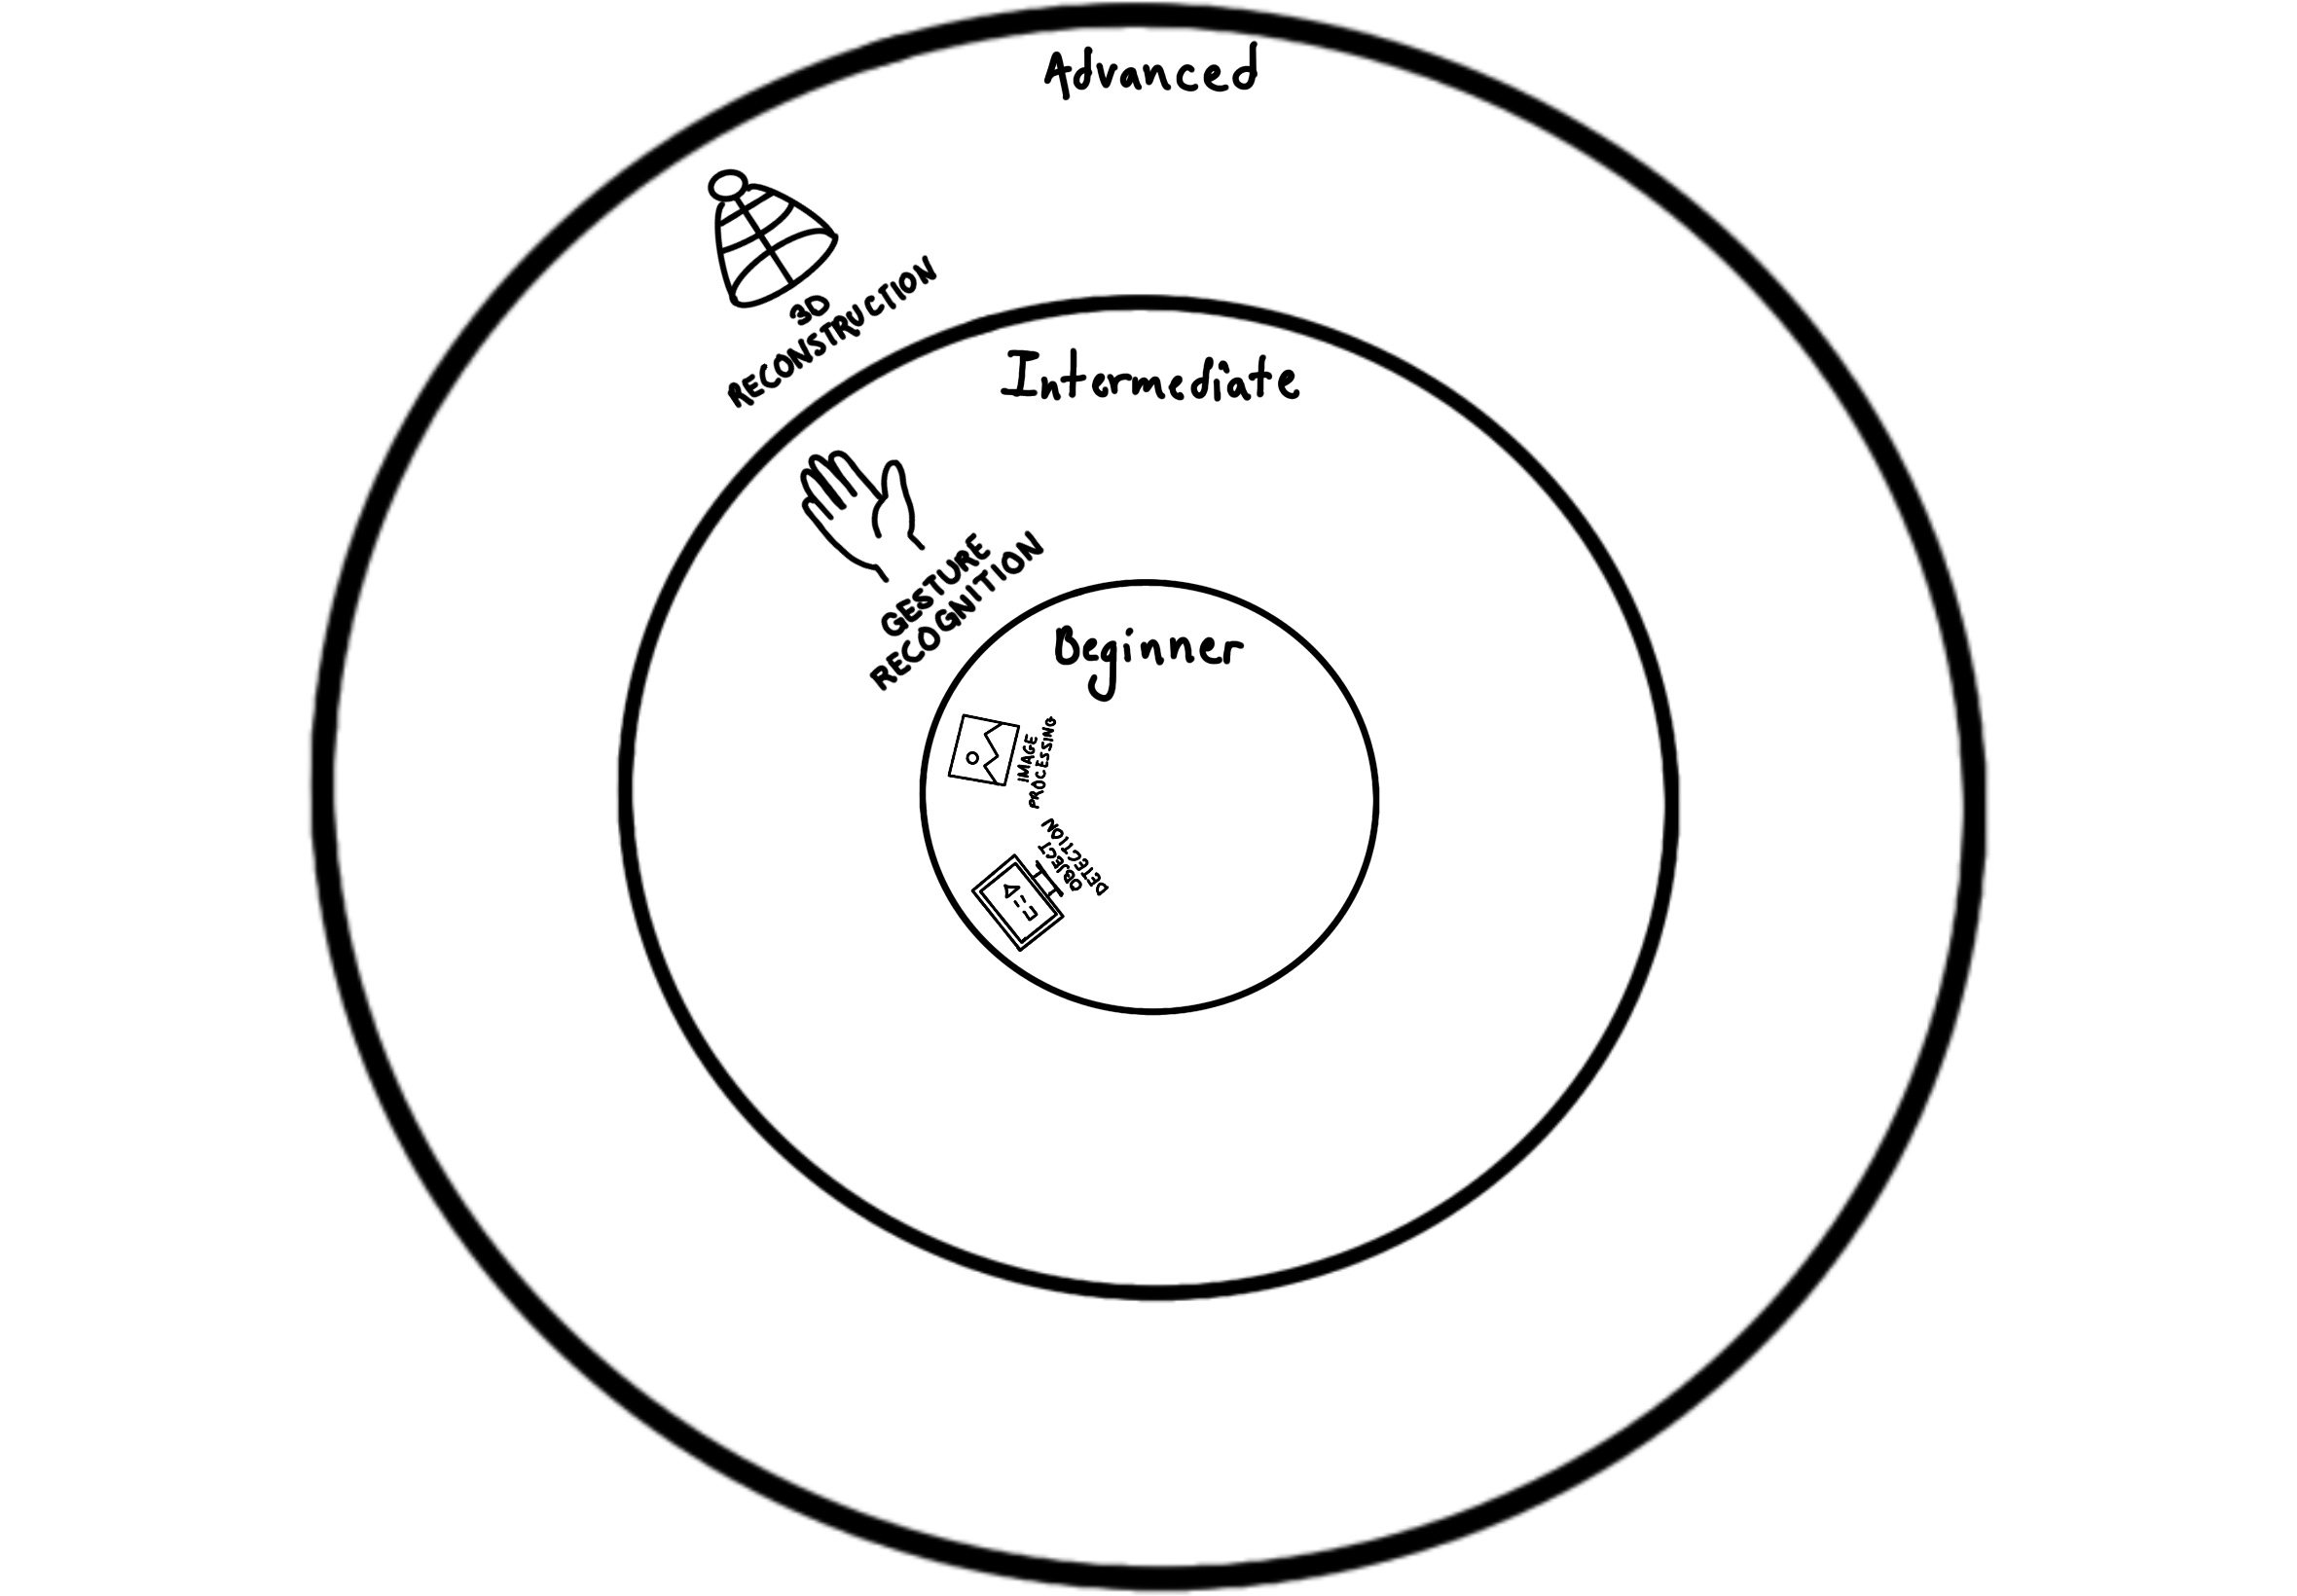 Advanced
3D
RECONSTRUCTION
Intermediate
GESTURE
RECOGNITION
Beginner
IMAGE
PROCESSING
OBJECT
DETECTION